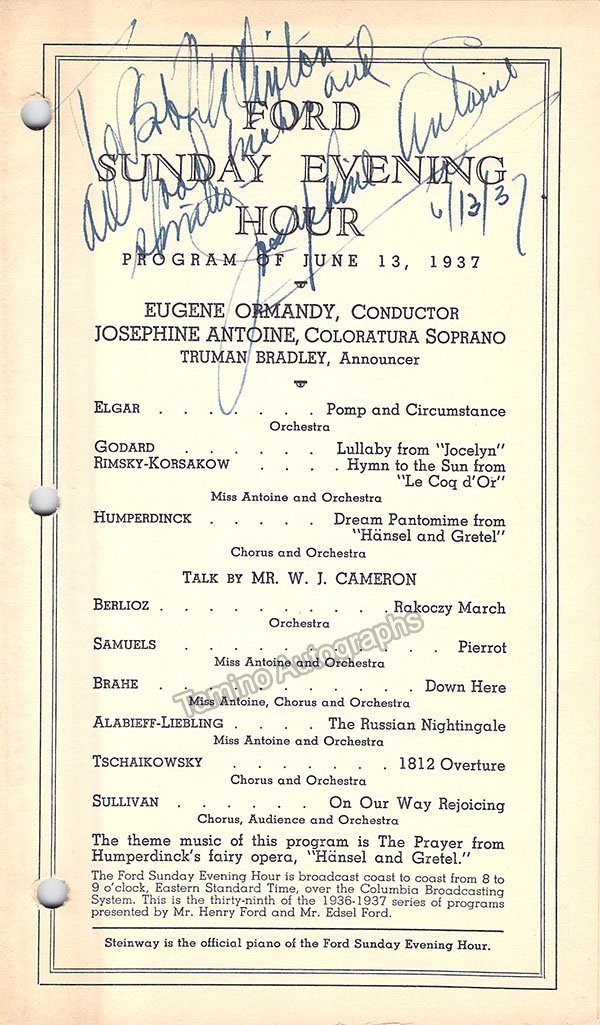 To Bob McMinton
all good wishes and
smiles
Josephine Antoine
6/13/37
FORD
SUNDAY EVENING
HOUR
PROGRAM OF JUNE 13, 1937
EUGENE ORMANDY, CONDUCTOR
JOSEPHINE ANTOINE, COLORATURA SOPRANO
TRUMAN BRADLEY, Announcer
ELGAR . . . . . . . Pomp and Circumstance
Orchestra
GODARD . . . . . . Lullaby from "Jocelyn"
RIMSKY-KORSAKOW . . . . Hymn to the Sun from
"Le Coq d'Or"
Miss Antoine and Orchestra
HUMPERDINCK . . . . . Dream Pantomime from
"Hänsel and Gretel"
Chorus and Orchestra
TALK BY MR. W. J. CAMERON
BERLIOZ . . . . . . . . . . Rakoczy March
Orchestra
SAMUELS . . . . . . . . . . . Pierrot
Miss Antoine and Orchestra
BRAHE . . . . . . . . . . . Down Here
Miss Antoine, Chorus and Orchestra
ALABIEFF-LIEBLING . . . . The Russian Nightingale
Miss Antoine and Orchestra
TSCHAIKOWSKY . . . . . . . 1812 Overture
Chorus and Orchestra
SULLIVAN . . . . . . On Our Way Rejoicing
Chorus, Audience and Orchestra
The theme music of this program is The Prayer from
Humperdinck's fairy opera, "Hänsel and Gretel."
The Ford Sunday Evening Hour is broadcast coast to coast from 8 to
9 o'clock, Eastern Standard Time, over the Columbia Broadcasting
System. This is the thirty-ninth of the 1936-1937 series of programs
presented by Mr. Henry Ford and Mr. Edsel Ford.
Steinway is the official piano of the Ford Sunday Evening Hour.
Tamino Autographs